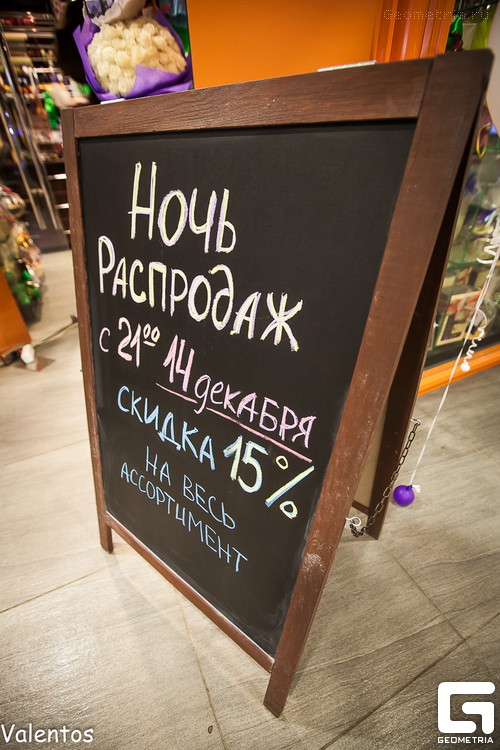 Geometria.ru
Ночь
Распродаж
с 21⁰⁰ 14 декабря
скидка 15%
на весь
ассортимент
Valentos
G
GEOMETRIA